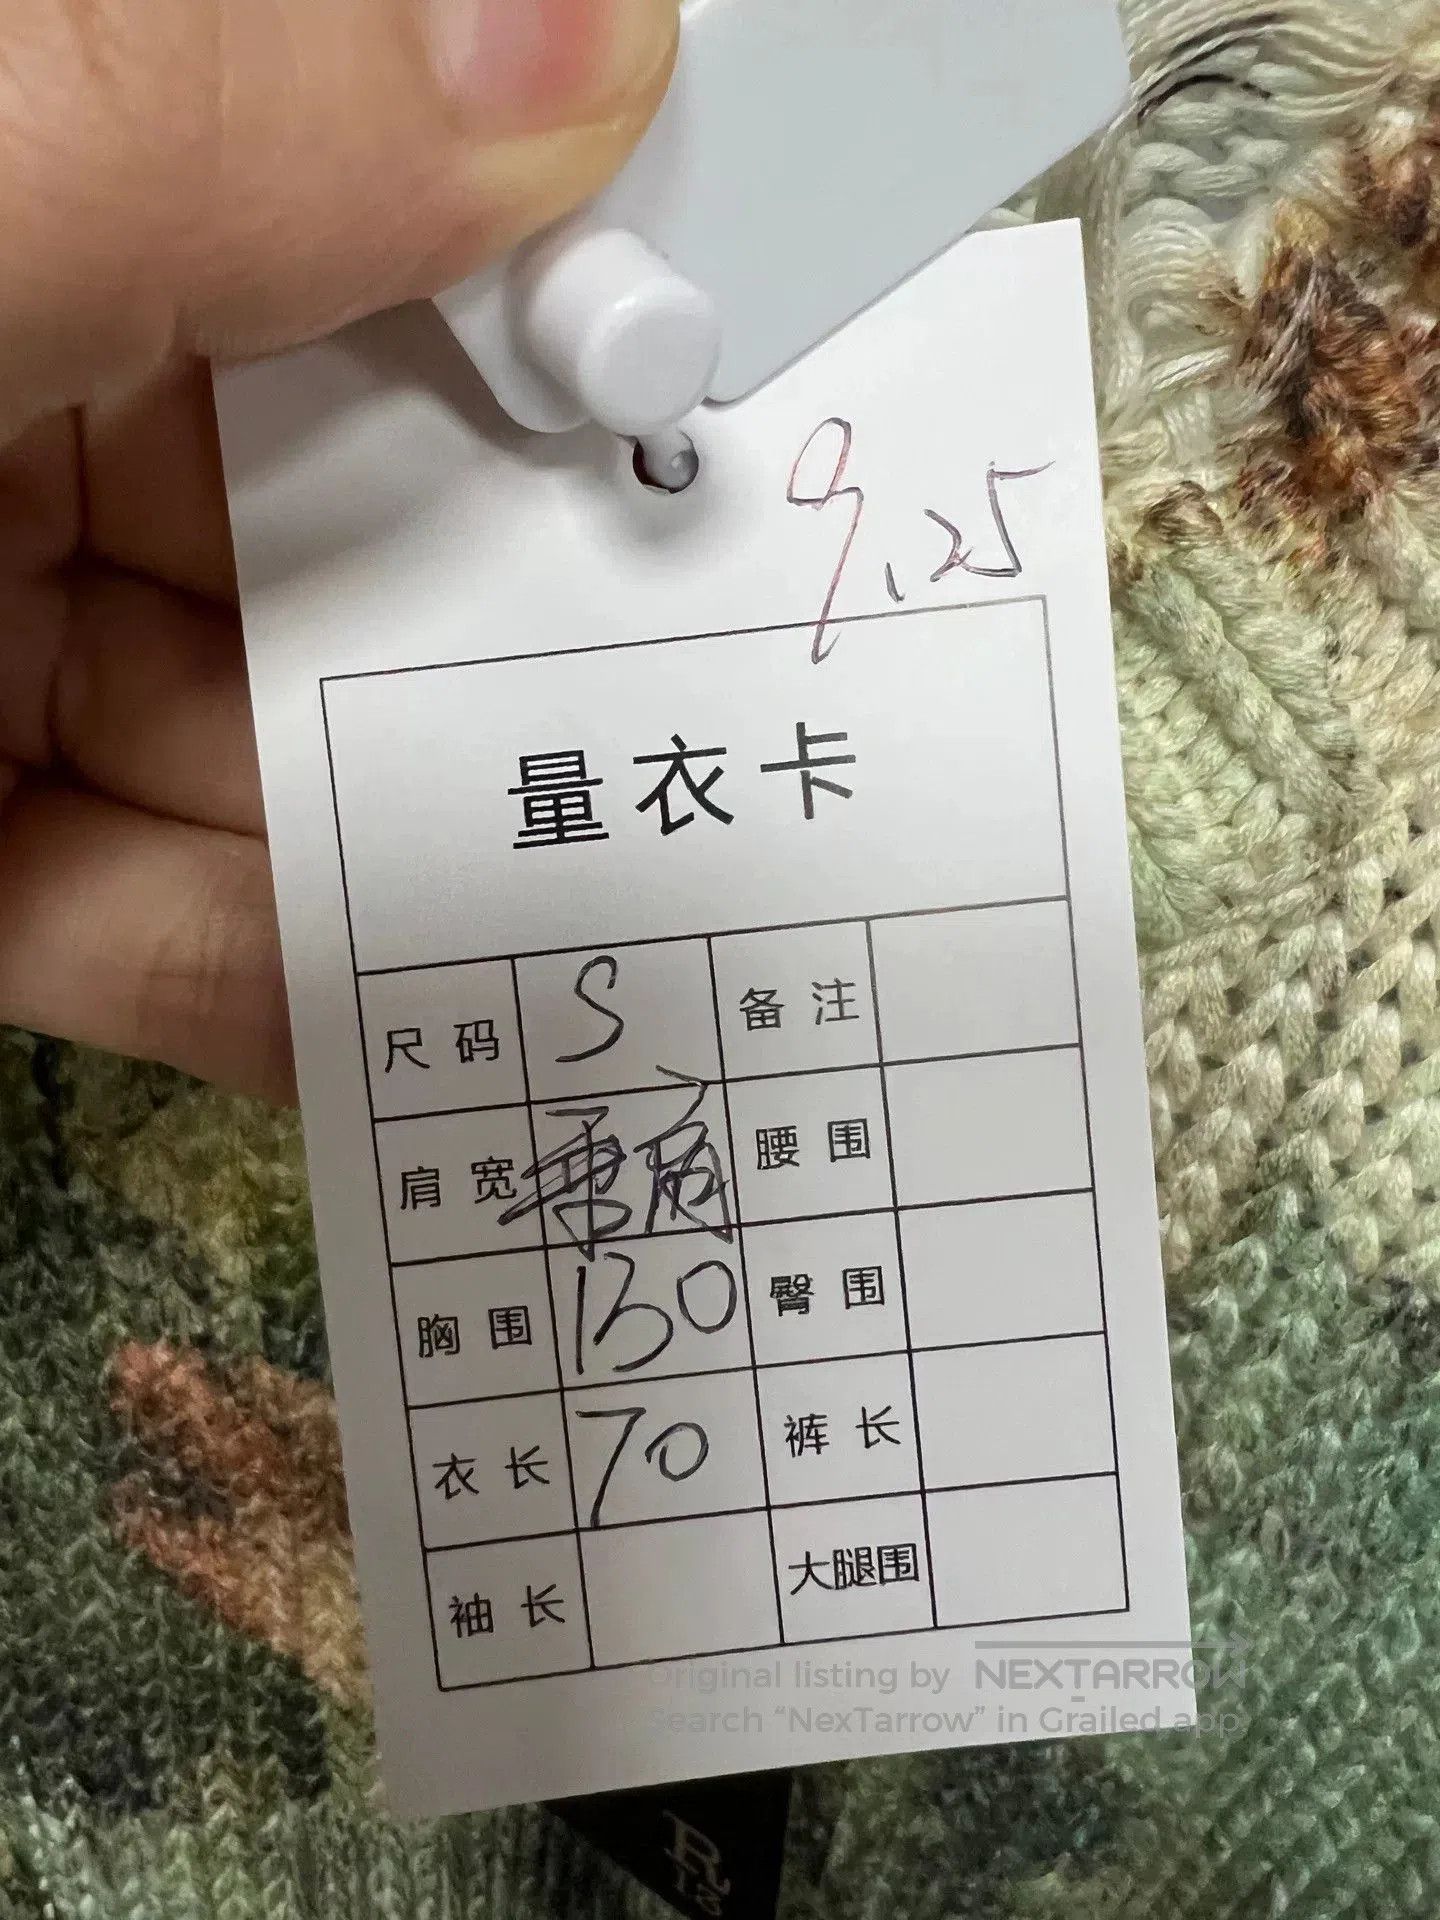 9.25
量衣卡
尺码 S 备注
肩宽 腰围
胸围 130 臀围
衣长 70 裤长
袖长 大腿围
Original listing by NEXTARROW
Search “NexTarrow” in Grailed app